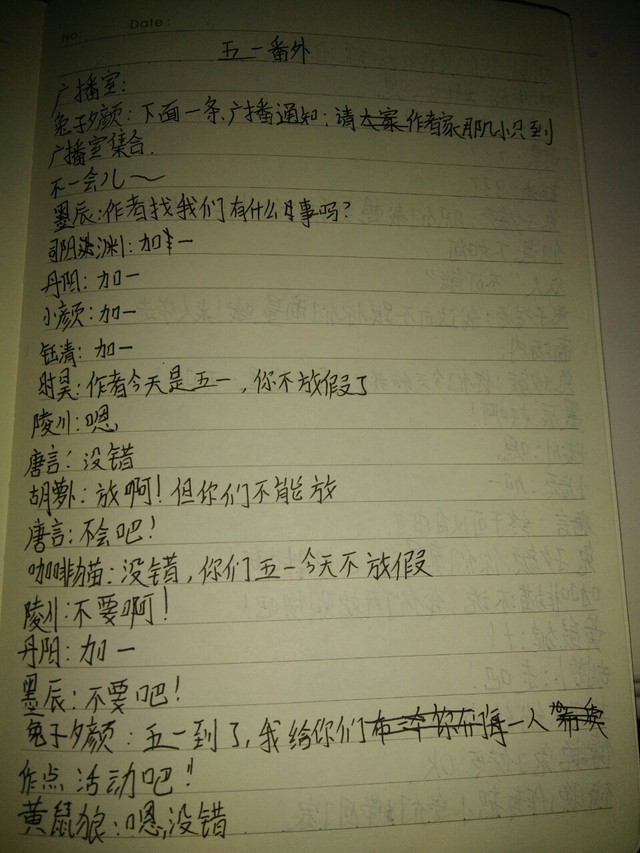 No:
Date:
五一番外
广播室:
兔子夕颜:下面一条,广播通知:请大家作者家那几小只到
广播室集合.
不一会儿~
墨辰:作者找我们有什么事吗?
司阴渊:加一
丹阳:加一
小颜:加一
钰清:加一
时昊:作者今天是五一,你不放假了
陵川:嗯
唐言:没错
胡萝卜:放啊!但你们不能放
唐言:不会吧!
咖啡猫:没错,你们五一今天不放假
陵川:不要啊!
丹阳:加一
墨辰:不要吧!
兔子夕颜:五一到了,我给你们每一人
作点活动吧!
黄鼠狼:嗯,没错